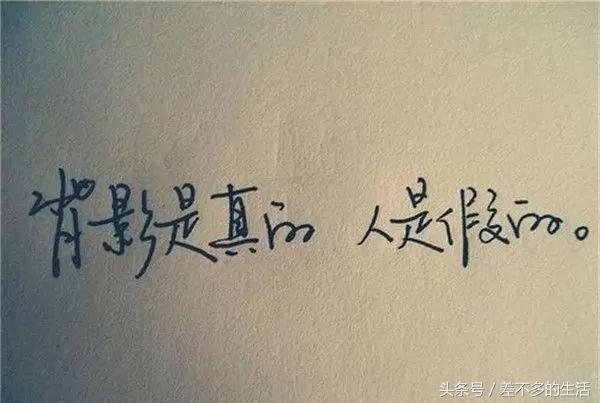 背影是真的 人是假的。
头条号／差不多的生活